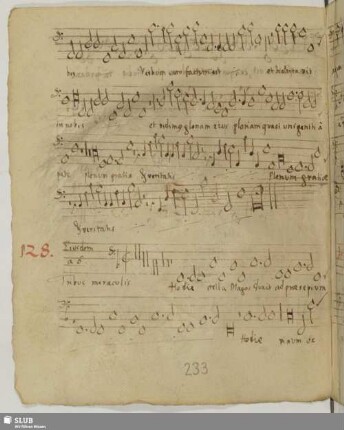 Verbum caro factum est et habitavit
in nobis et vidimus gloriam eius gloriam quasi unigeniti à
patre plenum gratia & veritatis plenum gratiæ
& veritatis
128. Eiusdem
a 6
Tribus miraculis Hodie stella Magos duxit ad præsepium
Hodie vinum ex
233
SLUB
Wir führen Wissen.